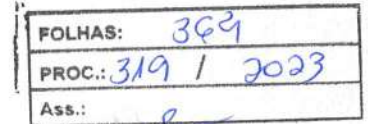 FOLHAS: 364
PROC.: 319 / 2023
Ass.: